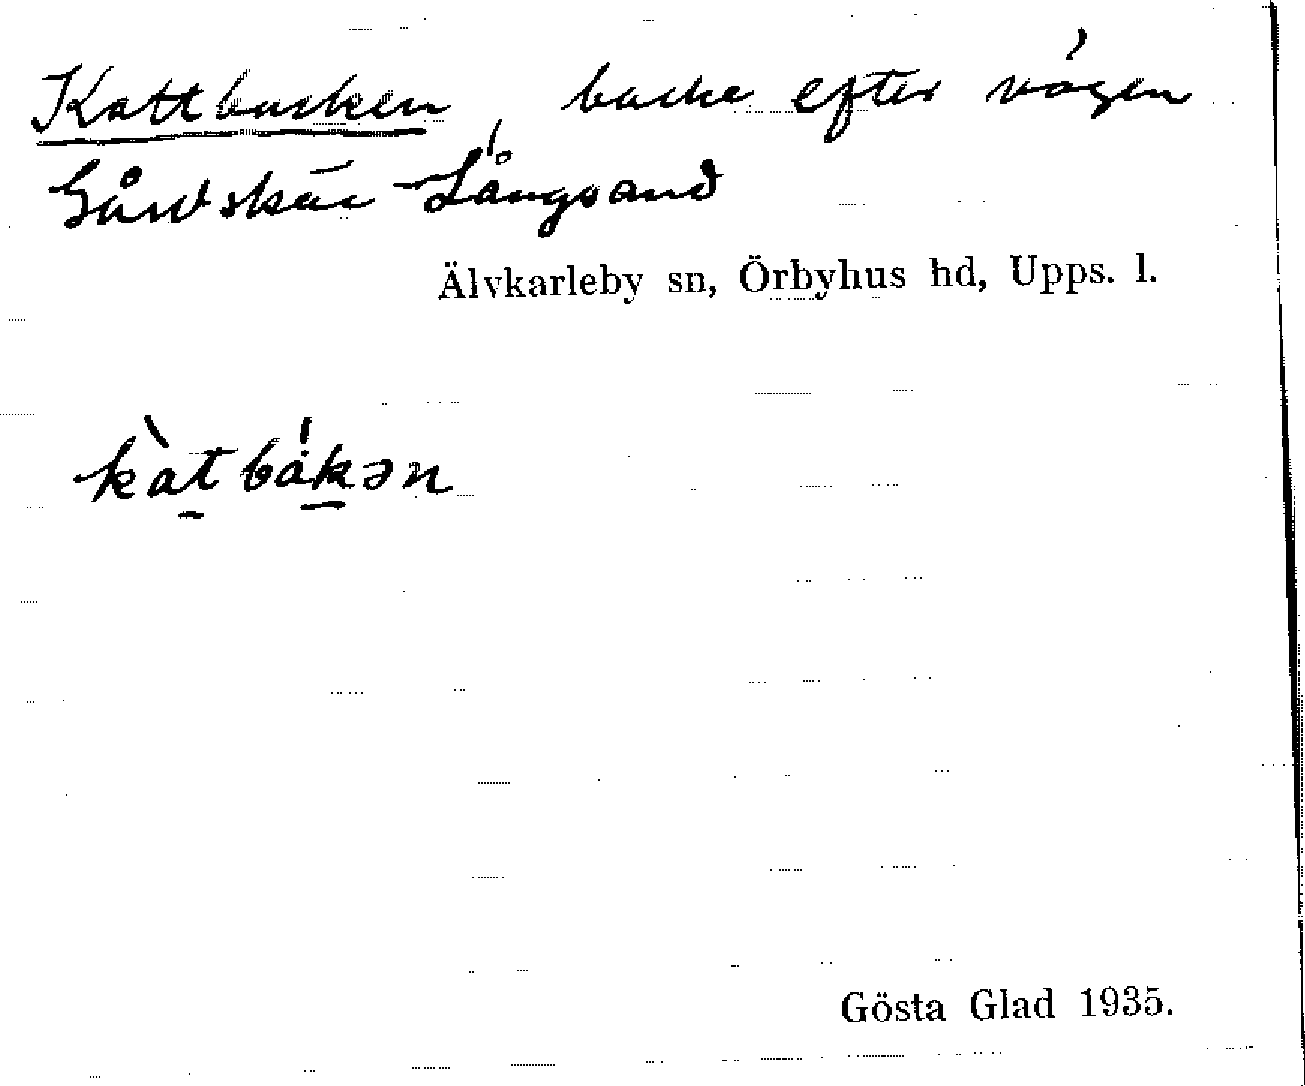 Kattbacken, backe efter vägen
Gårdskär-Långsand
Älvkarleby sn, Örbyhus hd, Upps. l.
kàt̠bák̠ən
Gösta Glad 1935.